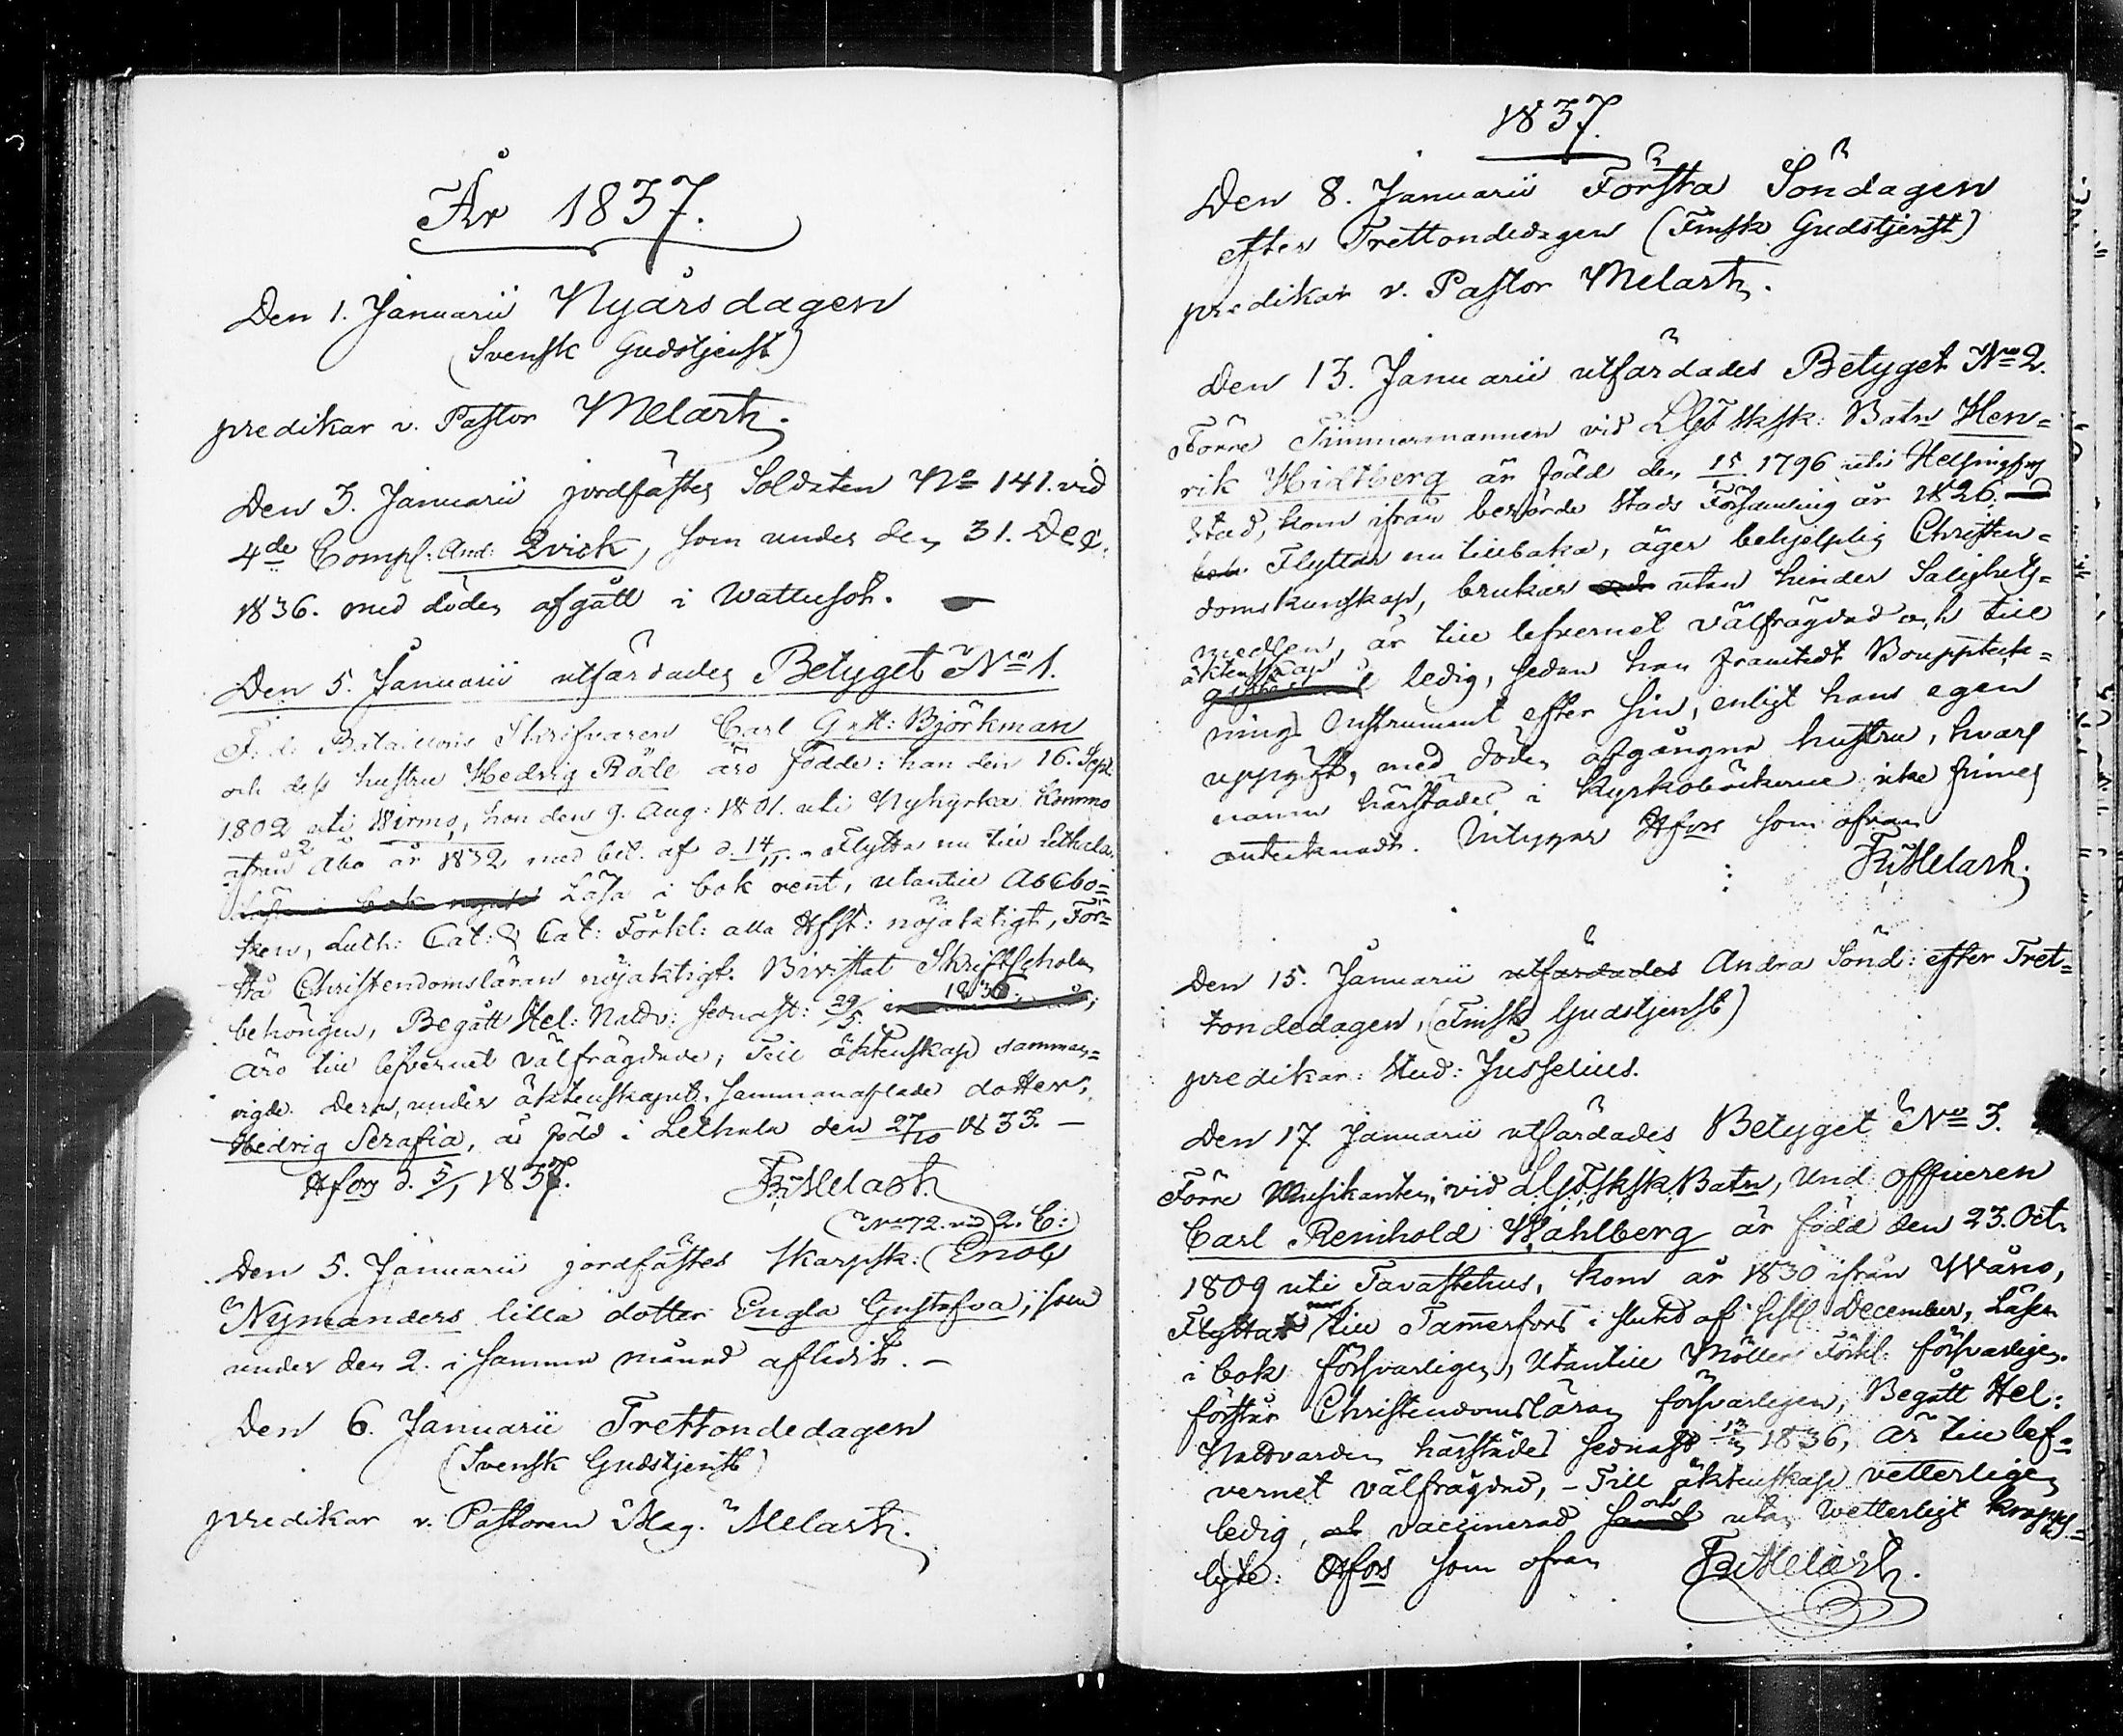 År 1837.
Den 1. Januarii Nyårsdagen
(Svensk Gudstjenst)
predikar v. Pastor Melarth.
Den 3. Januarii jordfästes Soldaten No 141. vid
4de Comp: And: Qvick, som under den 31. Dec.
1836. med döden afgått i Wattusoh.
Den 5. Januarii utfärdades Betyget No 1.
F. d. Bataillons Skrifvaren Carl Gust: Björkman
och dess hustru Hedvig Röde äro födde: han den 16. Sept
1802 uti Wirmo, hon den 9. Aug: 1801. uti Nykyrka. Kommo
ifrån Åbo år 1832 med bet. af d. 14/11. Flytta nu till Lethala.
Läsa i bok rent, utantill Abcbo=
ken, Luth: Cat: & Cat: Förkl: alla Hfst: nöjaktigt, För=
stå Christendomsläran nöjaktigt. Bivistat Skriftskolan
behörigen, Begått Hel: Nattv: sednast: 29/5. 1836.
äro till lefvernet välfrägdade; Till äktenskap samman=
vigde. Deras, under äktenskapet, sammanaflade dotter,
Hedvig Serafia, är född i Lethala den 27/10 1833. —
Hfors d. 5/1 1837. Fr: Melarth.
(No 72. vid 2. C:)
Den 5. Januarii jordfästes Skarpsk: Enoch
Nymanders lilla dotter Engla Gustafva, som
under den 2. i samma månad aflidit. —
Den 6. Januarii Trettondedagen
(Svensk Gudstjenst)
predikar v. Pastoren Mag. Melarth.
1837.
Den 8. Januarii Första Söndagen
efter Trettondedagen (Finsk Gudstjenst)
predikar v. Pastor Melarth.
Den 13. Januarii utfärdades Betyget No 2.
Förre Timmermannen vid LGFSksk: Batn Hen=
rik Hidtberg är född den 15 1796 uti Helsingfors
Stad, kom ifrån berörde Stads Församling år 1826.
Flyttar nu tillbaka, äger behjelplig Christen=
domskunskap, brukar utan hinder Salighets=
medlen, är till lefvernet välfrägdad och till
äktenskap ledig, sedan han framtedt Bouppteck=
nings Instrument efter sin, enligt hans egen
uppgift, med döden afgångna hustru, hvars
namn härstädes i Kyrkoböckerna icke finnes
antecknadt. Intygar Hfors som ofvan
Fr: Melarth.
Den 15. Januarii utfärdades Andra Sönd: efter Tret=
tondedagen, (Finsk Gudstjenst)
predikar: Stud: Jusselius.
Den 17 Januarii utfärdades Betyget No 3.
Förre Musikanten vid LGFSksk. Batn, Und. officeren
Carl Reinhold Wahlberg är född den 23. Oct.
1809 uti Tavastehus, kom år 1830 ifrån Wåno,
Flyttat till Tamerfors i slutet af sistl December, Läser
i bok försvarligen, Utantill Möllers Förkl. försvarligen.
förstår Christendomsläran försvarligen, Begått Hel:
Nattvarden härstädes sednast 1836, är till lef=
vernet välfrägdad, – Till äktenskap vetterligen
ledig, vaccinerad och utan wetterligt kropps=
lyte: Hfors som ofvan Fr: Melarth.